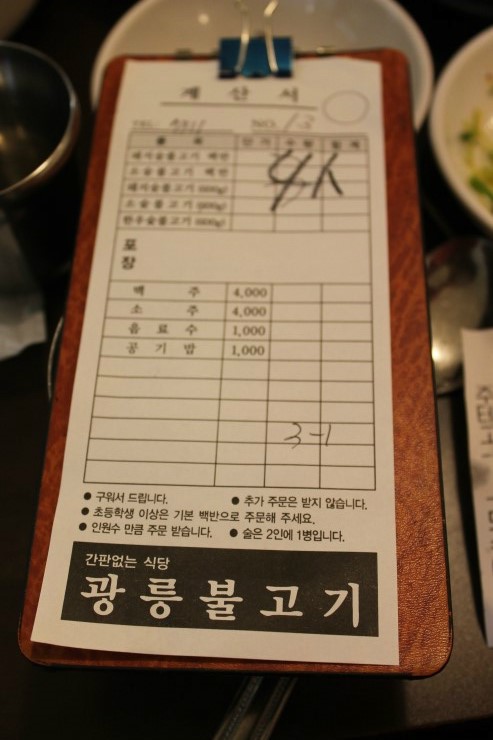 계 산 서
NO. 1-3
품 목 단 가 수 량 합 계
돼지숯불고기 백반
소숯불고기 백반
돼지숯불고기 (600g)
소숯불고기 (600g)
한우숯불고기 (600g)
포
장
맥 주 4,000
소 주 4,000
음 료 수 1,000
공 기 밥 1,000
3-1
● 구워서 드립니다. ● 추가 주문은 받지 않습니다.
● 초등학생 이상은 기본 백반으로 주문해 주세요.
● 인원수 만큼 주문 받습니다. ● 술은 2인에 1병입니다.
간판없는 식당
광릉불고기